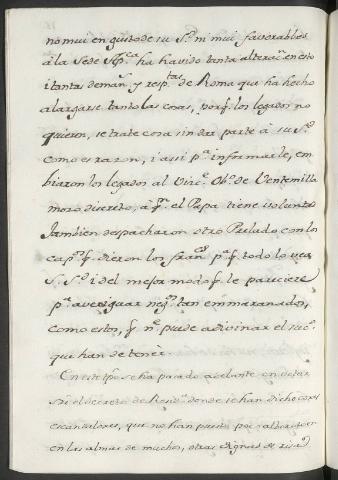 no mui en gusto de su S.d ni mui favorables
á la Sede Ap.ca ha havido tanta alterac.n en esto
i tantas deman.s y resp.tas de Roma que ha hecho
alargarse tanto las cosas, porq̃. los legados no
quieren, se trate cosa sin dar parte á su S.d
como es razon, i assi p.a informarle, em
biaron los legados al Obp.o de Ventemilla
moço discreto, á q.n el Papa tiene voluntad
Tambien despacharon otro Prelado con los
cap.os q̃. dieron los fran.ses p.a q̃. todo lo vea
S. S.d i del mejor modo q̃. le pareciere
p.a averiguar neg.os tan enmarañados,
como estos, q̃. n.o puede adivinar el suc.o
que han de tener.
En este tp̃o se ha parado adelante en votar
sre el decreto de Resid.a donde se han dicho cosas
escandalosas, que no han puesto poca alteracion
en las almas de muchos, otras dignas de risa